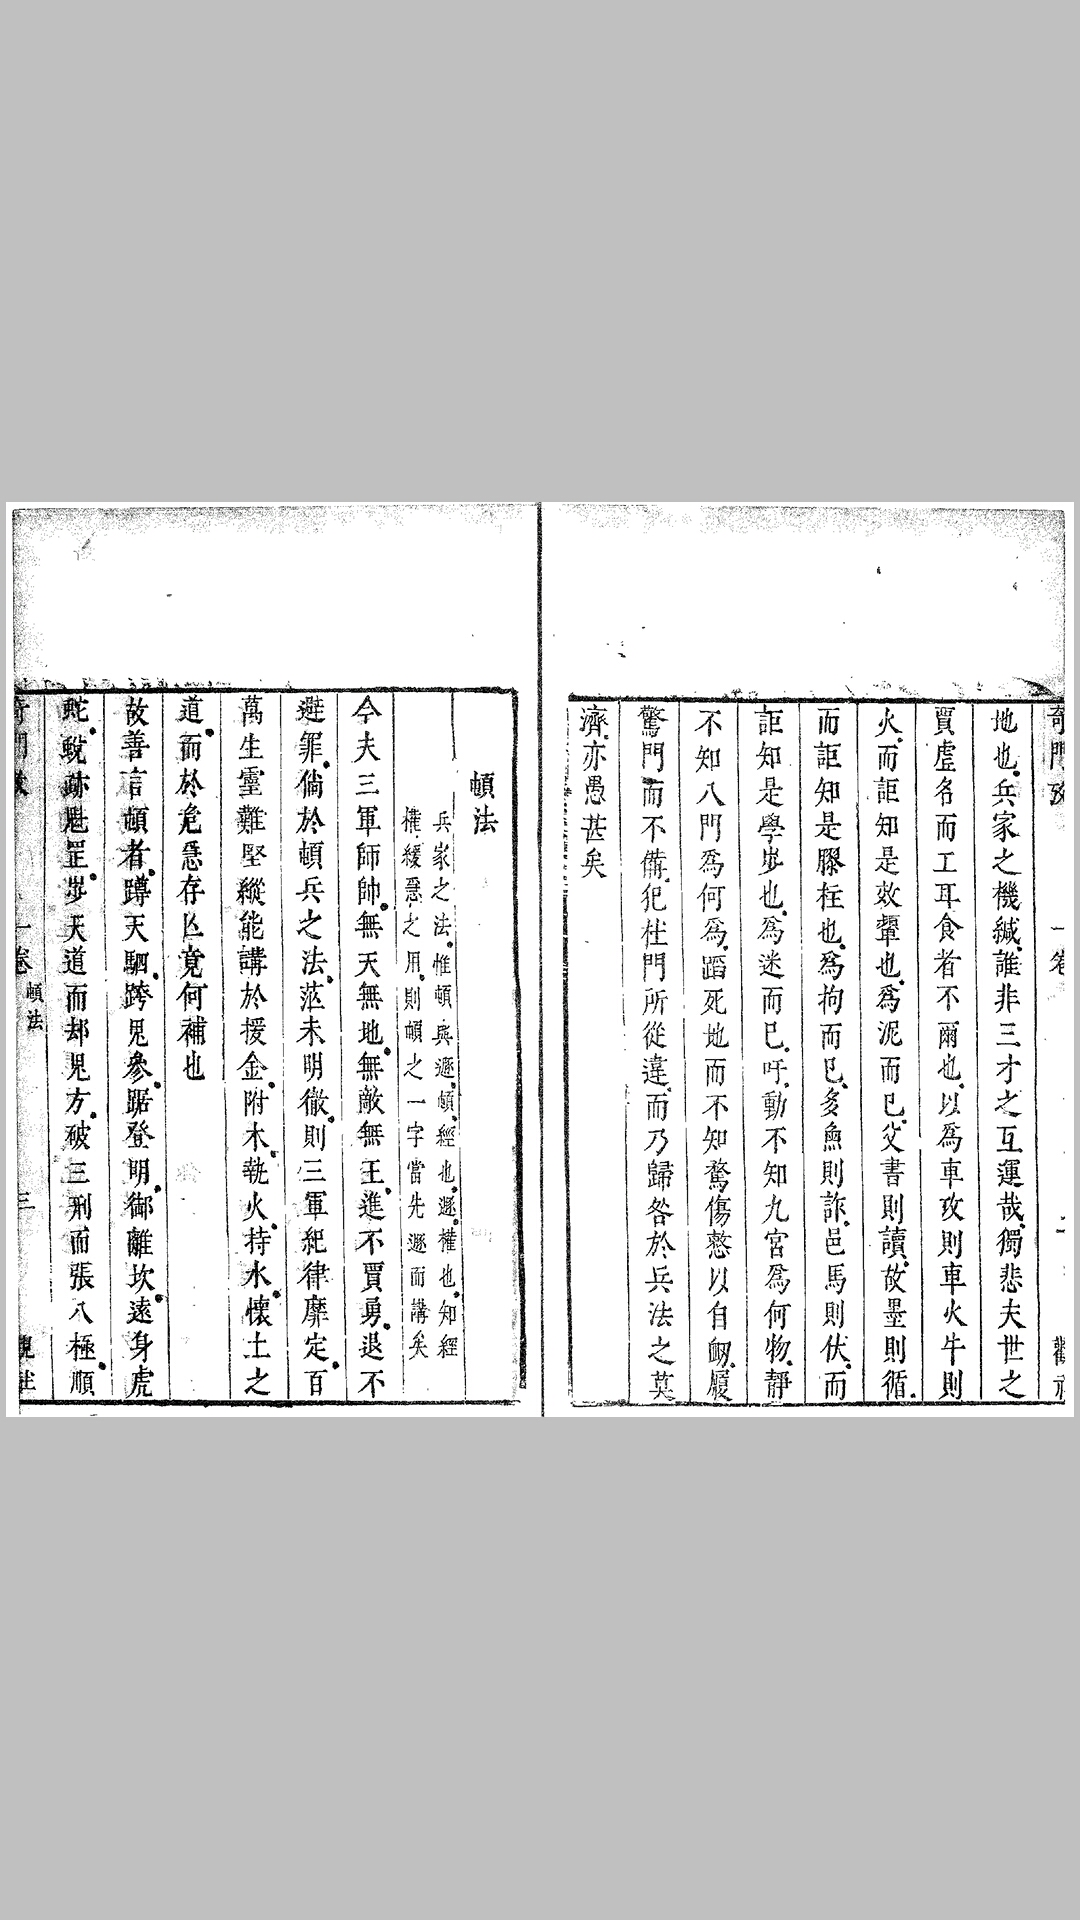 地也兵家之機緘誰非三才之互運哉獨悲夫世之
賈虛名而工耳食者不爾也以爲車攻則車火牛則
火而詎知是效顰也爲泥而已父書則讀故壘則循
而詎知是膠柱也爲拘而已多魚則詐邑馬則伏而
詎知是學步也爲迷而已吁動不知九宮爲何物靜
不知八門爲何爲蹈死地而不知驚傷憗以自衂履
驚門而不備犯杜門所從違而乃歸咎於兵法之莫
濟亦愚甚矣
頓法
兵家之法惟頓與遯頓經也遯權也知經
權緩急之用則頓之一字當先遯而講矣
今夫三軍師帥無天無地無敵無王進不賈勇退不
避罪倘於頓兵之法茫未明徹則三軍紀律靡定百
萬生靈難堅縱能講於援金附木執火持水懷土之
道而於危急存亾竟何補也
故善言頓者蹲天駟跨參踞登明御離坎遠身虎
蛇蛻跡魁罡步天道而却方破三刑而張八極順
一卷
頓法
三